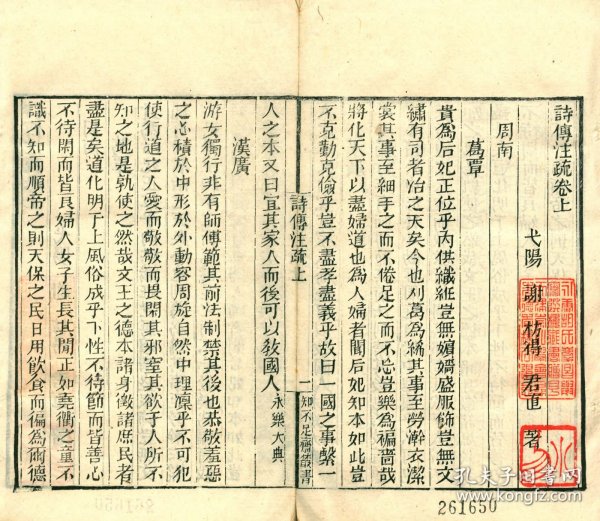 詩傳注疏卷上
弋陽 謝枋得 君直 著
周南
葛覃
貴為后妃正位乎內供纖紝豈無媚嬌盛服飾豈無文
繡有司者治之夭矣今也刈葛為絺其事至勞澣衣潔
裳其事至細手之而不倦足之而不忘豈樂為褊嗇哉
將化天下以盡婦道也為人婦者聞后妃知本如此豈
不克勤克儉乎豈不盡孝盡義乎故曰一國之事繫一
詩傳注疏上
一
知不足齋叢書
人之本又曰宜其家人而後可以教國人 永樂大典
漢廣
游女獨行非有師傅範其前法制禁其後也恭敬羞惡
之心積於中形於外動容周旋自然中理凜乎不可犯
使行道之人愛而敬敬而畏閑其邪窒其欲于人所不
知之地是孰使之然哉文王之德本諸身徵諸庶民者
盡是矣道化明于上風俗成乎下性不待節而皆善心
不待閑而皆良婦人女子生長其閒正如堯衢之童不
識不知而順帝之則天保之民日用飲食而徧為爾德
261650
孔夫子旧书网